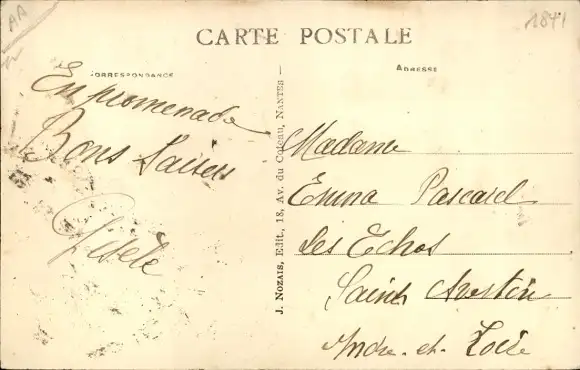 AA
1841
CARTE POSTALE
CORRESPONDANCE
ADRESSE
En promenade
Bons Baisers
Gisèle
J. NOZAIS, Edit., 18, Av. du Coteau, NANTES
Madame
Emma Pascarel
Les Echos
Saint Avertin
Indre-et-Loire